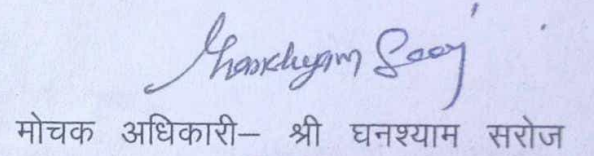 Ghanshyam Saroj
मोचक अधिकारी– श्री घनश्याम सरोज